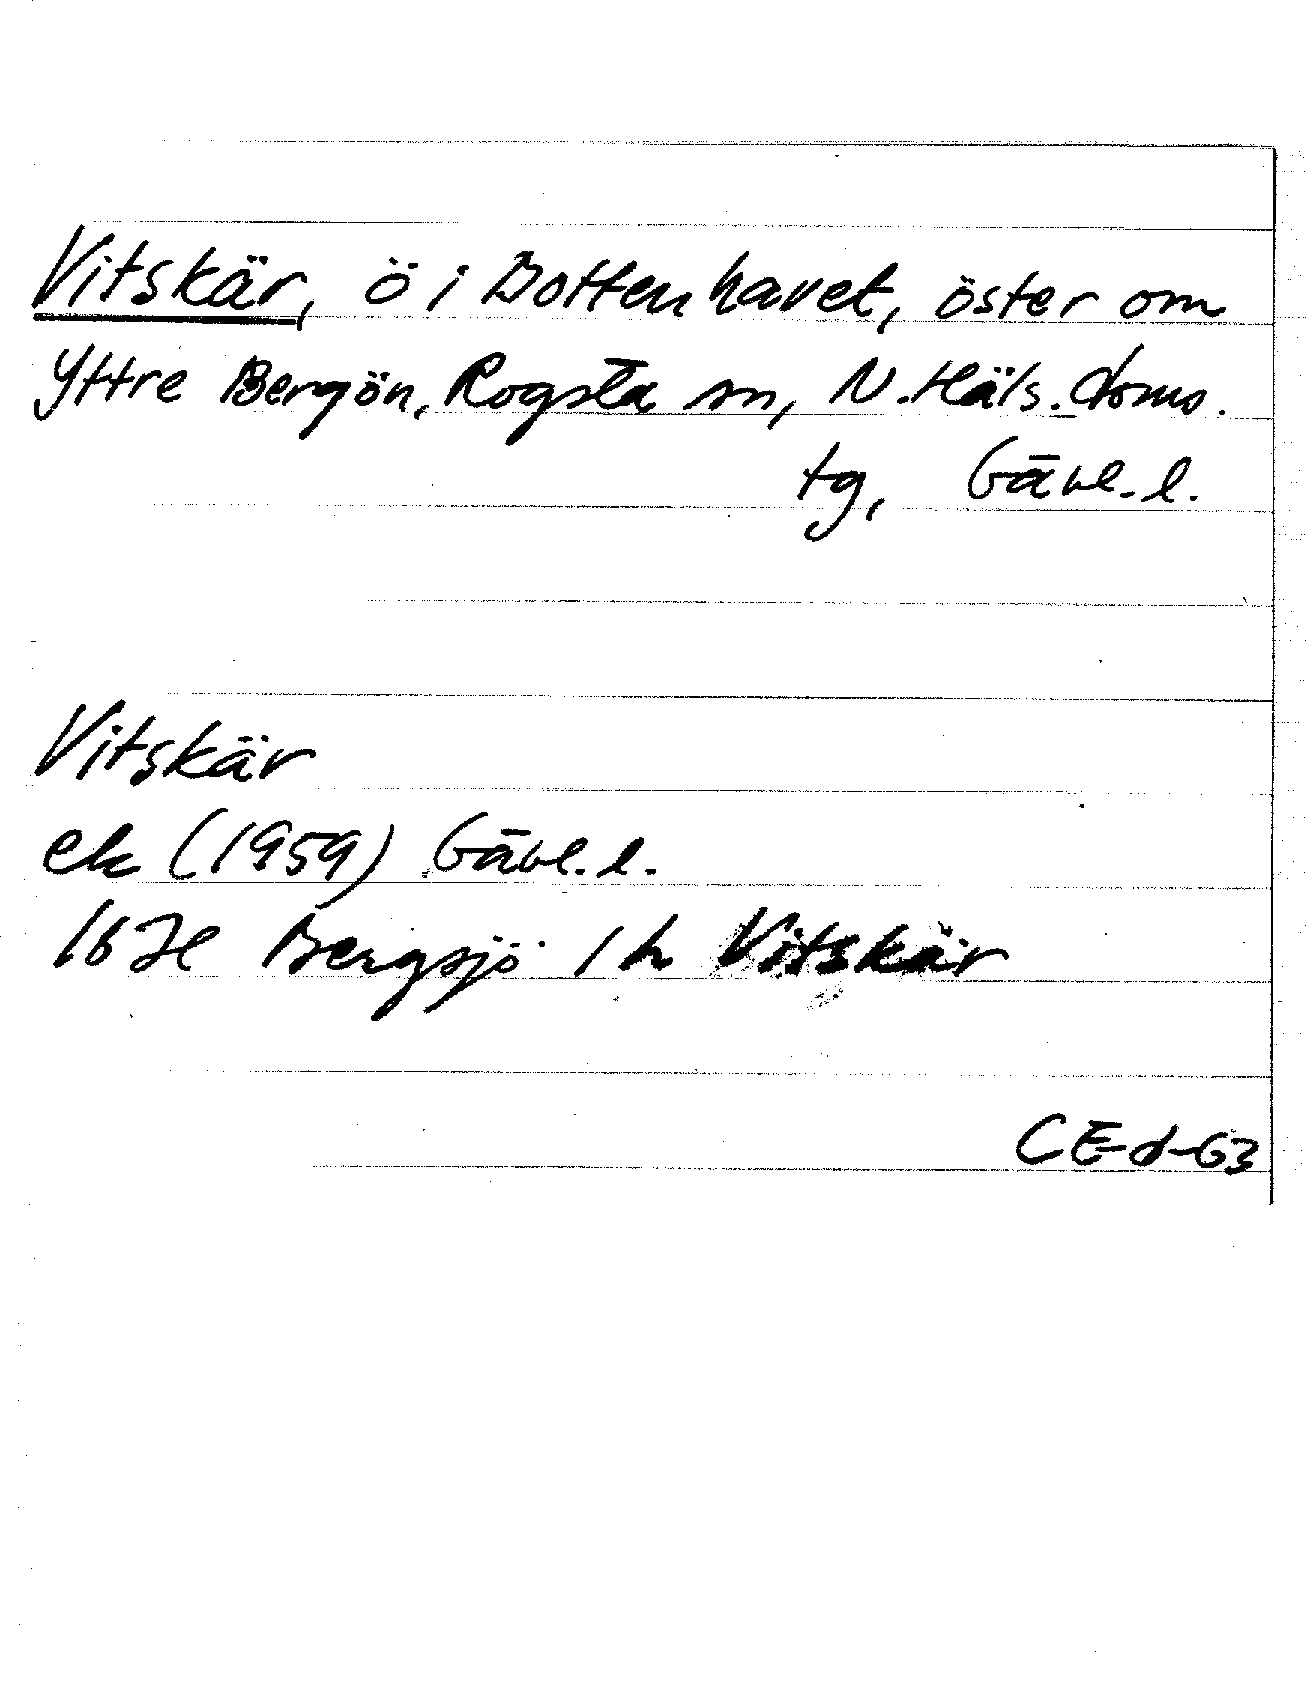 Vitskär, ö i Bottenhavet, öster om
Yttre Bergön, Rogsta sn, N.Häls.doms.
tg, Gävl.l.
Vitskär
ek (1959) Gävl.l.
16 7e Bergsjö 1 h Vitskär
CE-d-63